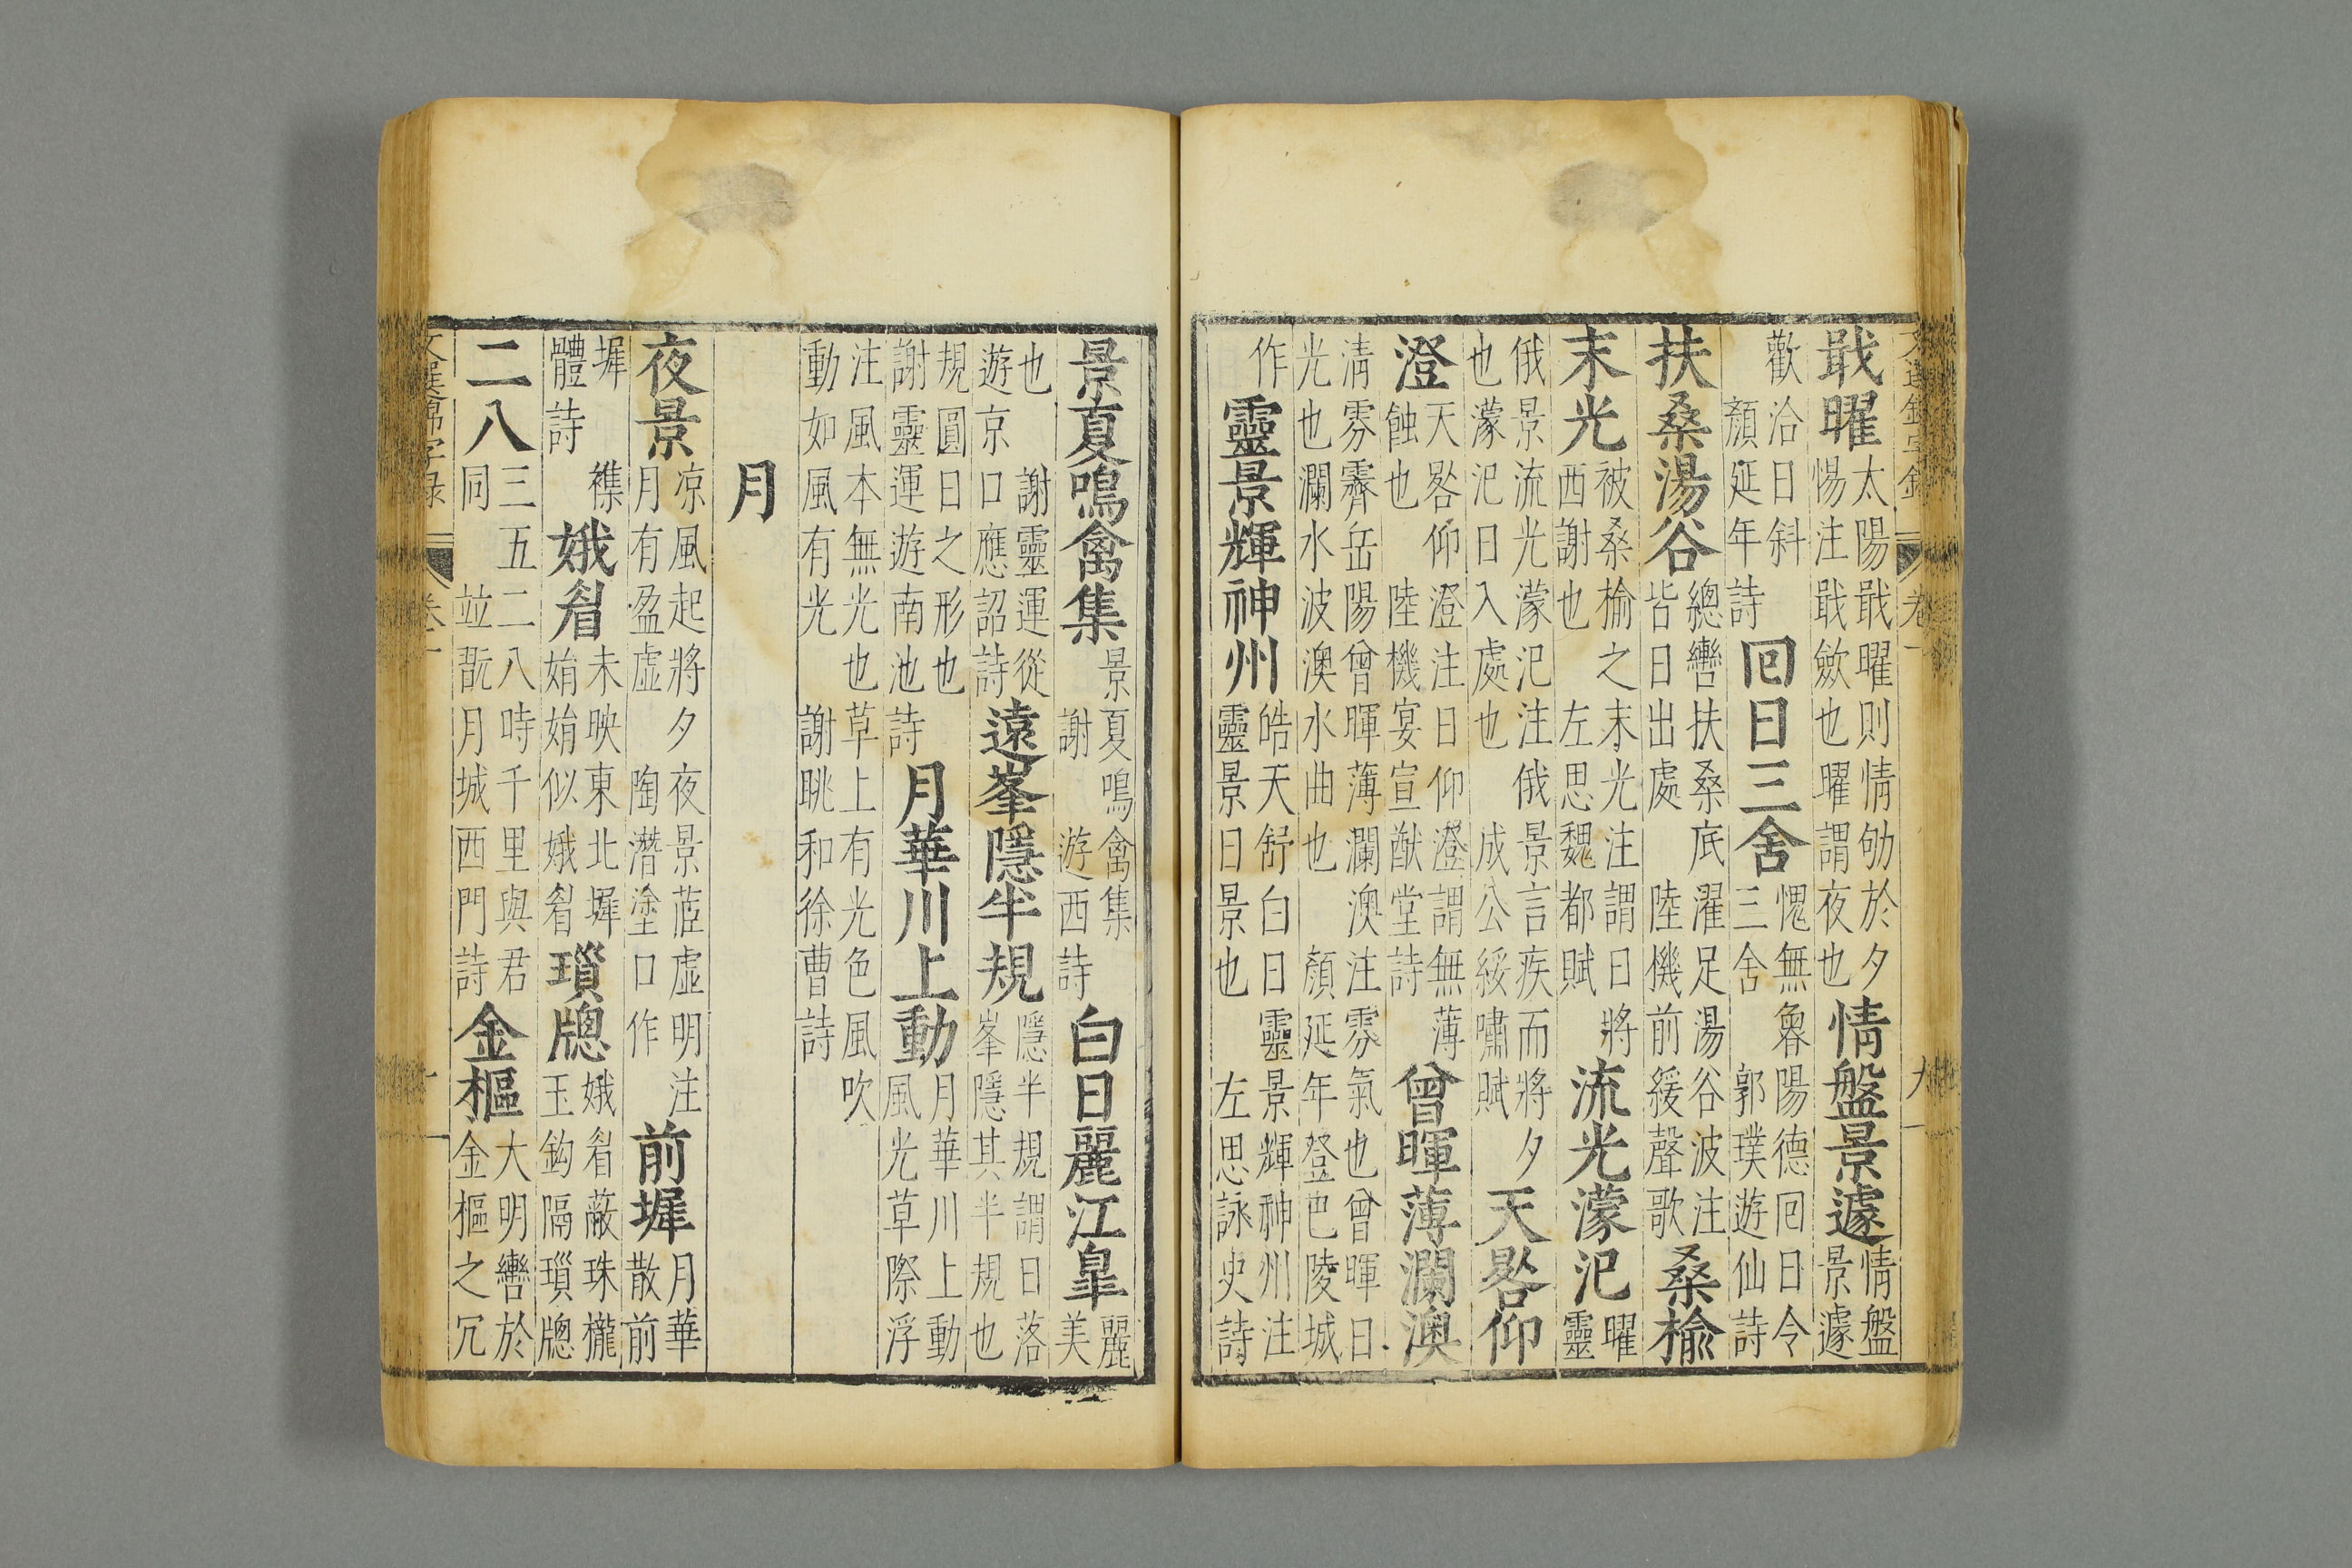 文選錦字錄 卷一 九
戢曜太陽戢曜則情劬於夕惕注戢斂也曜謂夜也情盤景遽情盤景遽
歡洽日斜顏延年詩回日三舍愧無魯陽德回日令三舍郭璞遊仙詩
扶桑湯谷總轡扶桑底濯足湯谷波注皆日出處陸機前緩聲歌桑榆
末光被桑榆之末光注謂日將西謝也左思魏都賦流光濛汜曜靈
俄景流光濛汜注俄景言疾而將夕也濛汜日入處也成公綏嘯賦天晷仰
澄天晷仰澄注日仰澄謂無薄蝕也陸機宴宣猷堂詩曾暉薄瀾澳
清雰霽岳陽曾暉薄瀾澳注雰氣也曾暉日光也瀾水波澳水曲也顏延年登巴陵城
作靈景輝神州皓天舒白日靈景輝神州注靈景日景也左思詠史詩
景夏鳴禽集景夏鳴禽集謝遊西詩白日麗江皋麗美
也謝靈運從遊京口應詔詩遠峯隱半規隱半規謂日落峯隱其半規也
規圓日之形也謝靈運遊南池詩月華川上動月華川上動風光草際浮
注風本無光也草上有光色風吹動如風有光謝眺和徐曹詩
月
夜景涼風起將夕夜景湛虛明注月有盈虛陶潛塗口作前墀月華散前
墀襍體詩娥眉未映東北墀娟娟似娥眉瑣牕娥眉蔽珠櫳玉鈎隔瑣牕
二八三五二八時千里與君同並翫月城西門詩金樞大明轡於金樞之冗
文選錦字錄 卷一 十